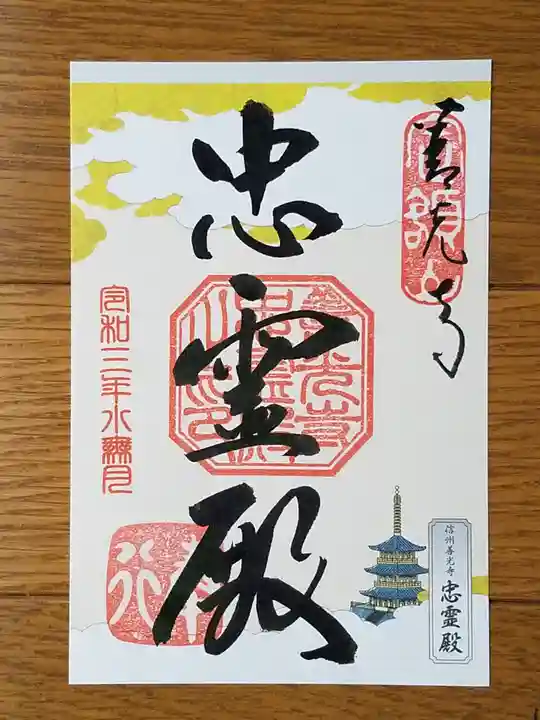 善光寺
忠霊殿
令和三年水無月
信州善光寺
忠霊殿